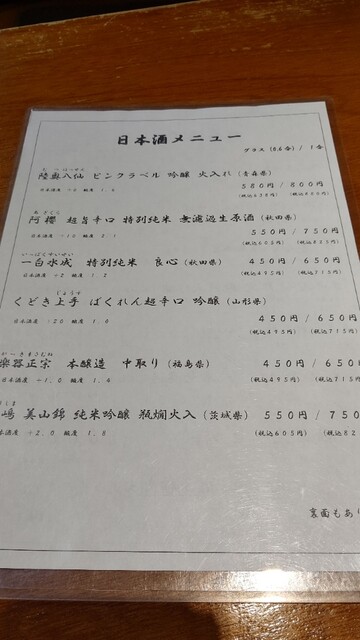 日本酒メニュー
グラス (0.6合) / 1合
む つ はっせん
陸奥八仙 ピンクラベル 吟醸 火入れ (青森県)
580円 / 800円
日本酒度
酸度 1.6
あ ざくら
阿櫻 超旨辛口 特別純米 無濾過生原酒 (秋田県)
550円 / 750円
日本酒度 +10 酸度 2.1
(税込605円) (税込825円)
いっぱくすいせい
一白水成 特別純米 良心 (秋田県)
450円 / 650円
日本酒度 +2 酸度 1.2
(税込495円) (税込715円)
じょうず
くどき上手 ばくれん超辛口 吟醸 (山形県)
450円 / 650円
日本酒度 +20 酸度 1.0
(税込495円) (税込715円)
が～きまさむね
楽器正宗 本醸造 中取り (福島県)
450円 / 650
日本酒度 -1.0 酸度 1.4
(税込495円) (税込715円
嶋 美山錦 純米吟醸 瓶燗火入 (茨城県)
550円 / 750
本酒度 +2.0 酸度 1.8
(税込605円) (税込82
裏面もあり